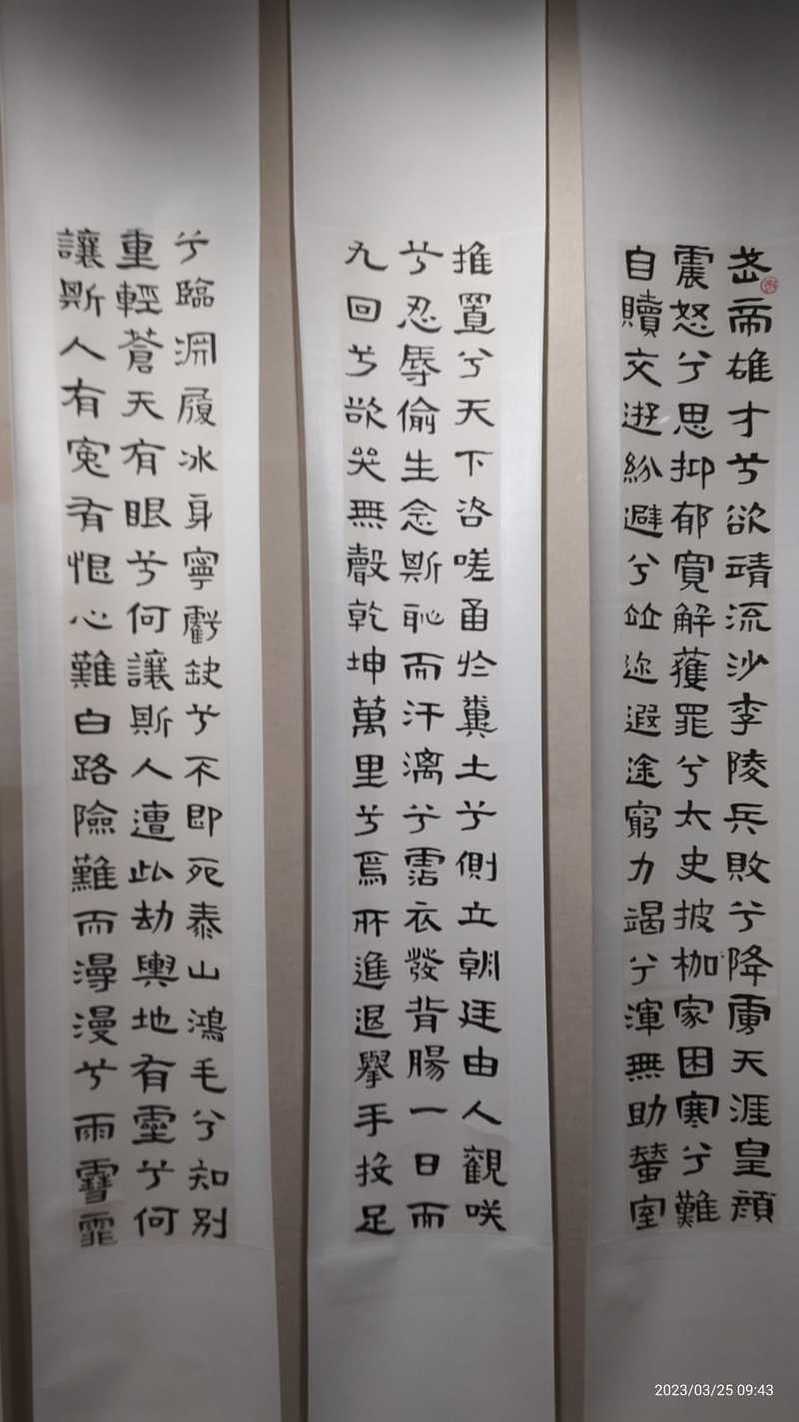 武帝雄才兮欲靖流沙李陵兵敗兮降虜天涯皇顏
震怒兮思抑郁寬解獲罪兮太史披枷家困寒兮難
自贖交遊紛避兮竝迩遐途窮力竭兮渾無助蠶室
推置兮天下咨嗟臿於糞土兮側立朝廷由人觀咲
兮忍辱偷生念斯恥而汗漓兮霑衣發背腸一日而
九回兮欲哭無聲乾坤萬里兮焉所進退舉手投足
兮臨淵履冰身寧虧缺兮不即死泰山鴻毛兮知別
重輕蒼天有眼兮何讓斯人遭此劫輿地有靈兮何
讓斯人有冤有恨心難白路險難而漫漫兮雨雪霏
2023/03/25 09:43